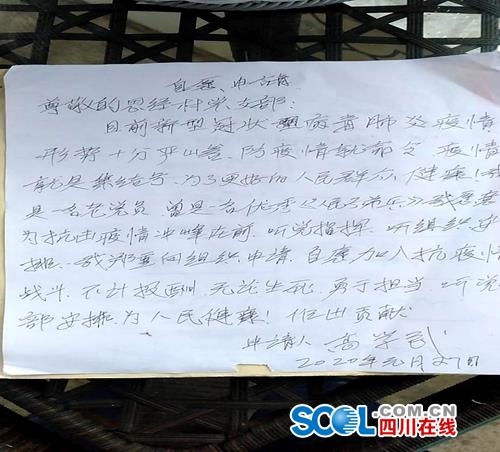 自愿申请
尊敬的思经村党支部:
目前新型冠状病毒肺炎疫情
形势十分严峻,防疫情就命令,疫情
就是集结号,为了更好的人民群众健康
是一名党员,曾是一名优秀《人民子弟兵》我愿意
为抗击疫情冲峰在前,听党指挥,听组织安
排,我郑重向组织申请,自愿加入抗疫情
战斗,不计报酬,无论生死,勇于担当,听党
部安排,为人民健康!作出贡献
申请人 高学武
2020年元月27日
SCOL.COM.CN
四川在线